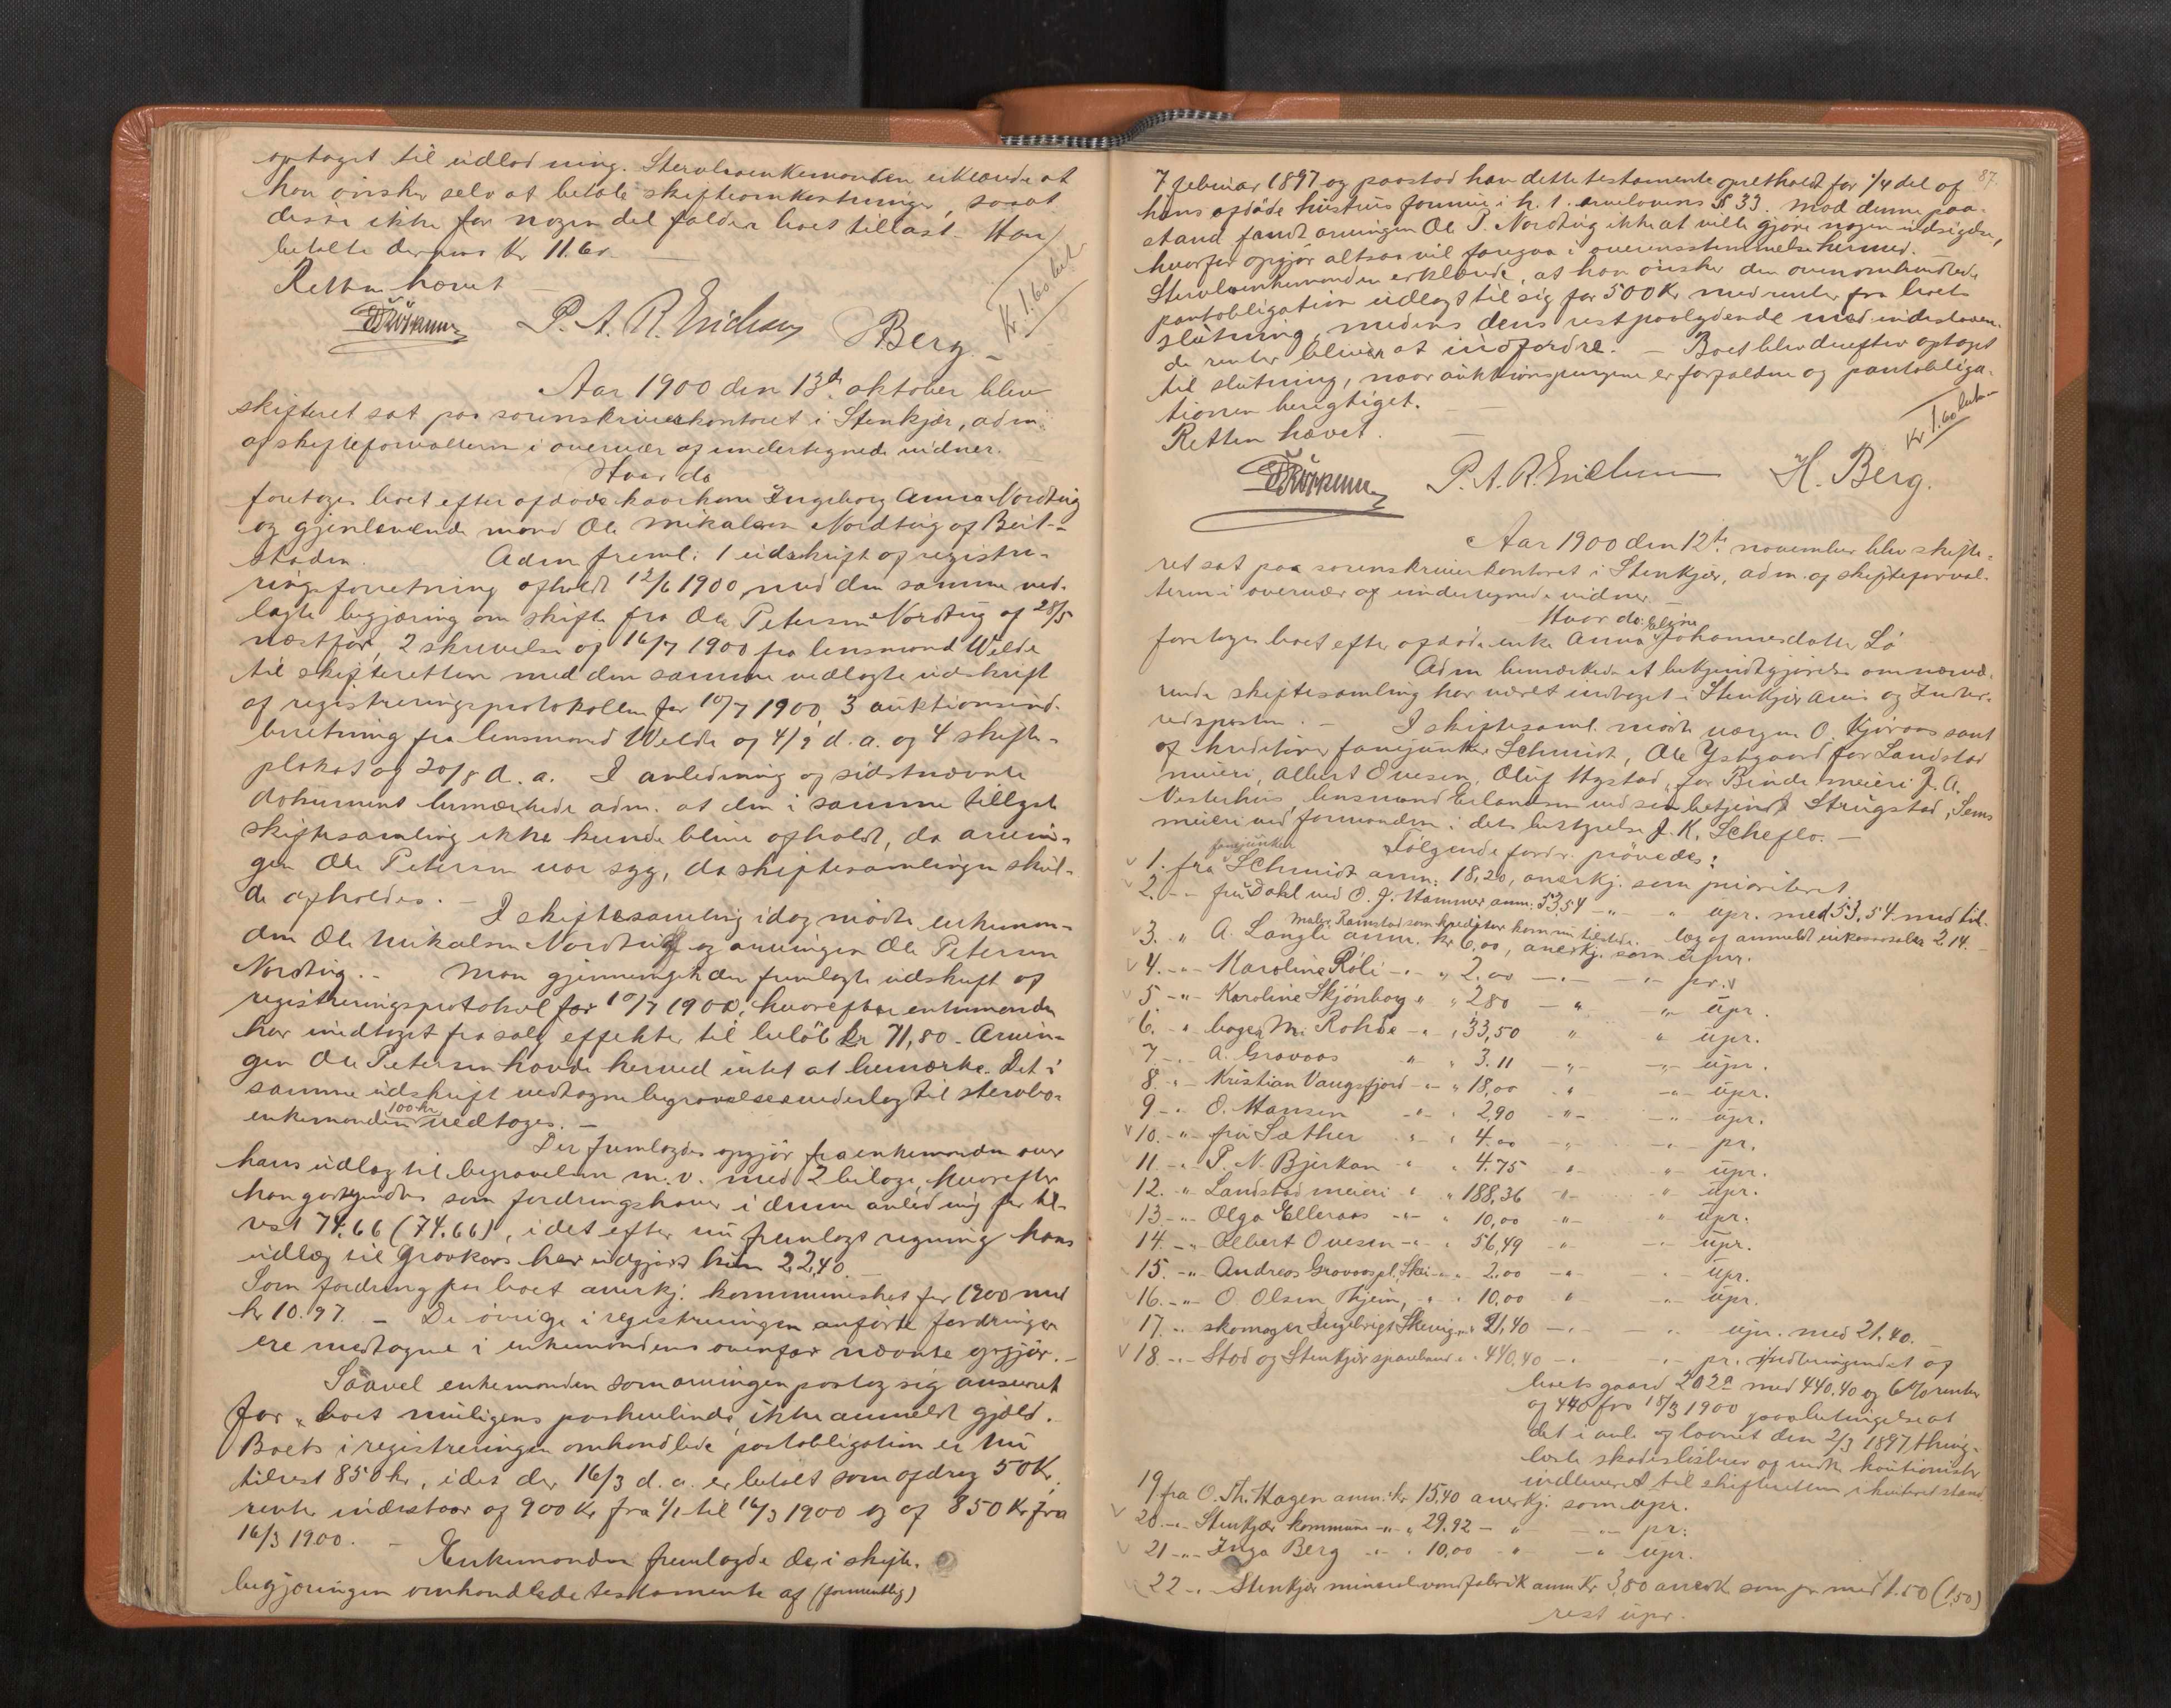 optaget til udlodning. Stervboenkemanden erklærede at
han ønsker selv at betale skifteomkostninger, saaat
disse ikke for nogen del falder boet tillast. Han
betalte derpaa Kr 11.6
Retten hævet
P. A. R. Erichsen Berg.
Kr 1.60 bet
Aar 1900 den 13de oktober blev
skifteret sat paa sorenskriverkontoret i Stenkjær, adm.
af skifteforvalteren i overvær af undertegnede vidner.
Hvor da
foretoges boet efter afdøde kaarkone Ingeborg Anna Nordtug
og gjenlevende mand Ole Mikalsen Nordtug af Beit-
staden. Adm freml: 1 udskrift af registre-
ringsforretning afholdt 12/6 1900 med den samme ved-
lagte begjæring om skifte fra Ole Petersen Nordtug af 28/5
næstfør, 2 skrivelse af 16/7 1900 fra lensmand Welde
til skifteretten med den samme vedlagte udskrift
af registreringsprotokollen for 10/7 1900 3 auktionsind-
beretning fra lensmand Welde af 4/9 d. a. og 4 skifte-
plakat af 20/8 d. a. I anledning af sidstnævnte
dokument bemærkede adm. at den i samme tillyste
skiftesamling ikke kunde blive afholdt, da arvin-
gen Ole Petersen var syg, da skiftesamlingen skul-
de afholdes. – I skiftesamling idag mødte enkeman-
den Ole Mikalsen Nordtug og arvingen Ole Petersen
Nordtug. – Man gjennemgik den fremlagte udskrift af
registreringsprotokol for 10/7 1900, hvorefter enkemanden
har indtaget fra salg effekter til beløb kr 71,80. Arvin-
gen Ole Petersen havde herved intet at bemærke. Det i
samme udskrift vedtagne begravelsesunderlag til stervbo-
enkemanden 100 kr vedtoges. –
Der fremlagdes opgjør fra enkemanden over
hans udlæg til begravelsen m. v. med 2 bilage, hvorefter
han godkjendtes som fordringshaver i denne anledning for til-
rest 74.66 (74.66), idet efter nu fremlagt regning hans
udlæg til Gravkors har udgjort kun 22,40
Som fordring paa boet anerkj: kommuneskat for 1900 med
kr 10.97. – De øvrige i registreringen anførte fordringer
ere medtagne i enkemandens ovenfor nævnte opgjør. –
Saavel enkemanden som arvingen paatog sig ansvaret
for boet muligens paahvilende ikke anmeldt gjæld.
Boets i registreringen omhandlede pantobligation er nu
tilrest 850 kr, idet der 16/3 d. a. er betalt som afdrag 50 Kr.
rente indestaar af 900 Kr fra 1/1 til 16/3 1900 og af 850 Kr fra
16/3 1900. – Enkemanden fremlagde det i skifte-
begjæringen omhandlede testamente af (formentlig)
87.
7 februar 1897 og paastod han dette testamente opretholdt for 1/4 del af
hans afdøde hustrus formue i h. t. arvelovens § 33. Mod denne paa-
stand fandt arvingen Ole P. Nordtug ikke at ville gjøre nogen indsigelse,
hvorfor opgjør altsaa vil foregaa i overensstemmelse hermed.
Stervboenkemanden erklærede, at han ønsker den ovenomhandlede
pantobligation udlagt til sig for 500 Kr med renter fra boets
slutning, medens dens restpaalydende med indestaaen-
de renter bliver at indfordre. – Boet blev derefter optaget
til slutning, naar auktionspengene er forfaldne og pantobliga-
tionen berigtiget. –
Retten hævet. –
Kr 1.60 bet
P. A. R. Erichsen H. Berg.
Aar 1900 den 12te november blev skifte-
ret sat paa sorenskriverkontoret i Stenkjær, adm. af skifteforval-
teren i overvær af undertegnede vidner
Hvor da
foretoges boet efter afdøde enke Anna Eline Johannesdatter Lø
Adm bemærkede at bekjendtgjørelse om nærvæ-
rende skiftesamling har været indtaget i Stenkjær avis og Indhe-
redsposten. – I skiftesaml. mødte værgen O. Kjøraas samt
af kreditorer fanejunker Schmidt, Ole Ystgaard for Landstad
meieri, Albert Ovesen, Oluf Hystad, for Binde meieri J. A.
Vesterhus, lensmand Erlandsen ved sin betjent Strugstad, Sems
meieri ved formanden i dets bestyrelse J. K. Scheflo. –
Følgende fordr. prøvedes:
1. fra fanejunker Schmidt anm: 18,20, anerkj. som prioriteret
2. – fru Dahl ved O. J. Hammer anm: 53,54 – " – " upr. med 53,54 med til-
Maler Ramstad som kreditor kom nu tilstede. læg af anmeldt inkassosalær 2.14. –
3. " A. Langli anm. kr 6,00, anerkj. som upr.
4. – " – Karoline Röli – " – " 2.00 – " – – " – pr.
5 – " – Karoline Skjönhag " " 2.80 – " – " – upr.
6. – " bager M. Rohde – " " 33,50 " " upr.
7 – " – A. Gravaas " – " 3.11 – " – – " – upr.
8. – " – Kristian Vangsfjord – " – " 18,00 – " – " – upr.
9 – " – O. Hansen – " – " 2,90 – " – – " – upr.
10. – " – fru Sæther – " – " 4.00 – " – – " – pr.
11 – " – P. N. Bjerkan – " – " 4.75 – " – – " – upr.
12. – " Landstad meieri " " 188,36 – " – " upr.
13. – " – Olga Elleraas – " – " 10,00 – " – " upr.
14. – " Albert Ovesen – " – " 56,49 – " – – " – upr.
15. – " – Andreas Gravaas pl. Skei – " – " 2.00 – " – " – upr.
16. – " – O. Olsen Thjem, " " 10.00 " – " – upr.
17. – " – skomager Ingebrigt Skevig – " – " 21,40 – " – – " – upr. med 21.40. –
18. – " – Stod og Stenkjær spareband " " 440.40 – " – – " – pr. Indbringendet af
boets gaard 202 a med 440.40 og 6 % renter
af 440 fra 15/3 1900 paa betingelse at
det i anl. af laanet den 2/3 1897 thing-
læste skadesløsbrev og vedk kautionister
indleveret til skifteretten i kvitteret stand.
19 fra O. Th. Hagen anm: kr 15,40 anerkj. som upr.
20. – " – Stenkjær kommune – " – " 29.92 – " – " – pr:
21 – " – Inga Berg – " – " 10,00 – " – " upr.
22 – " – Stenkjær mineralvandfabrik anm Kr 3,80 anerk som pr med 1.50 (1,50)
rest upr.